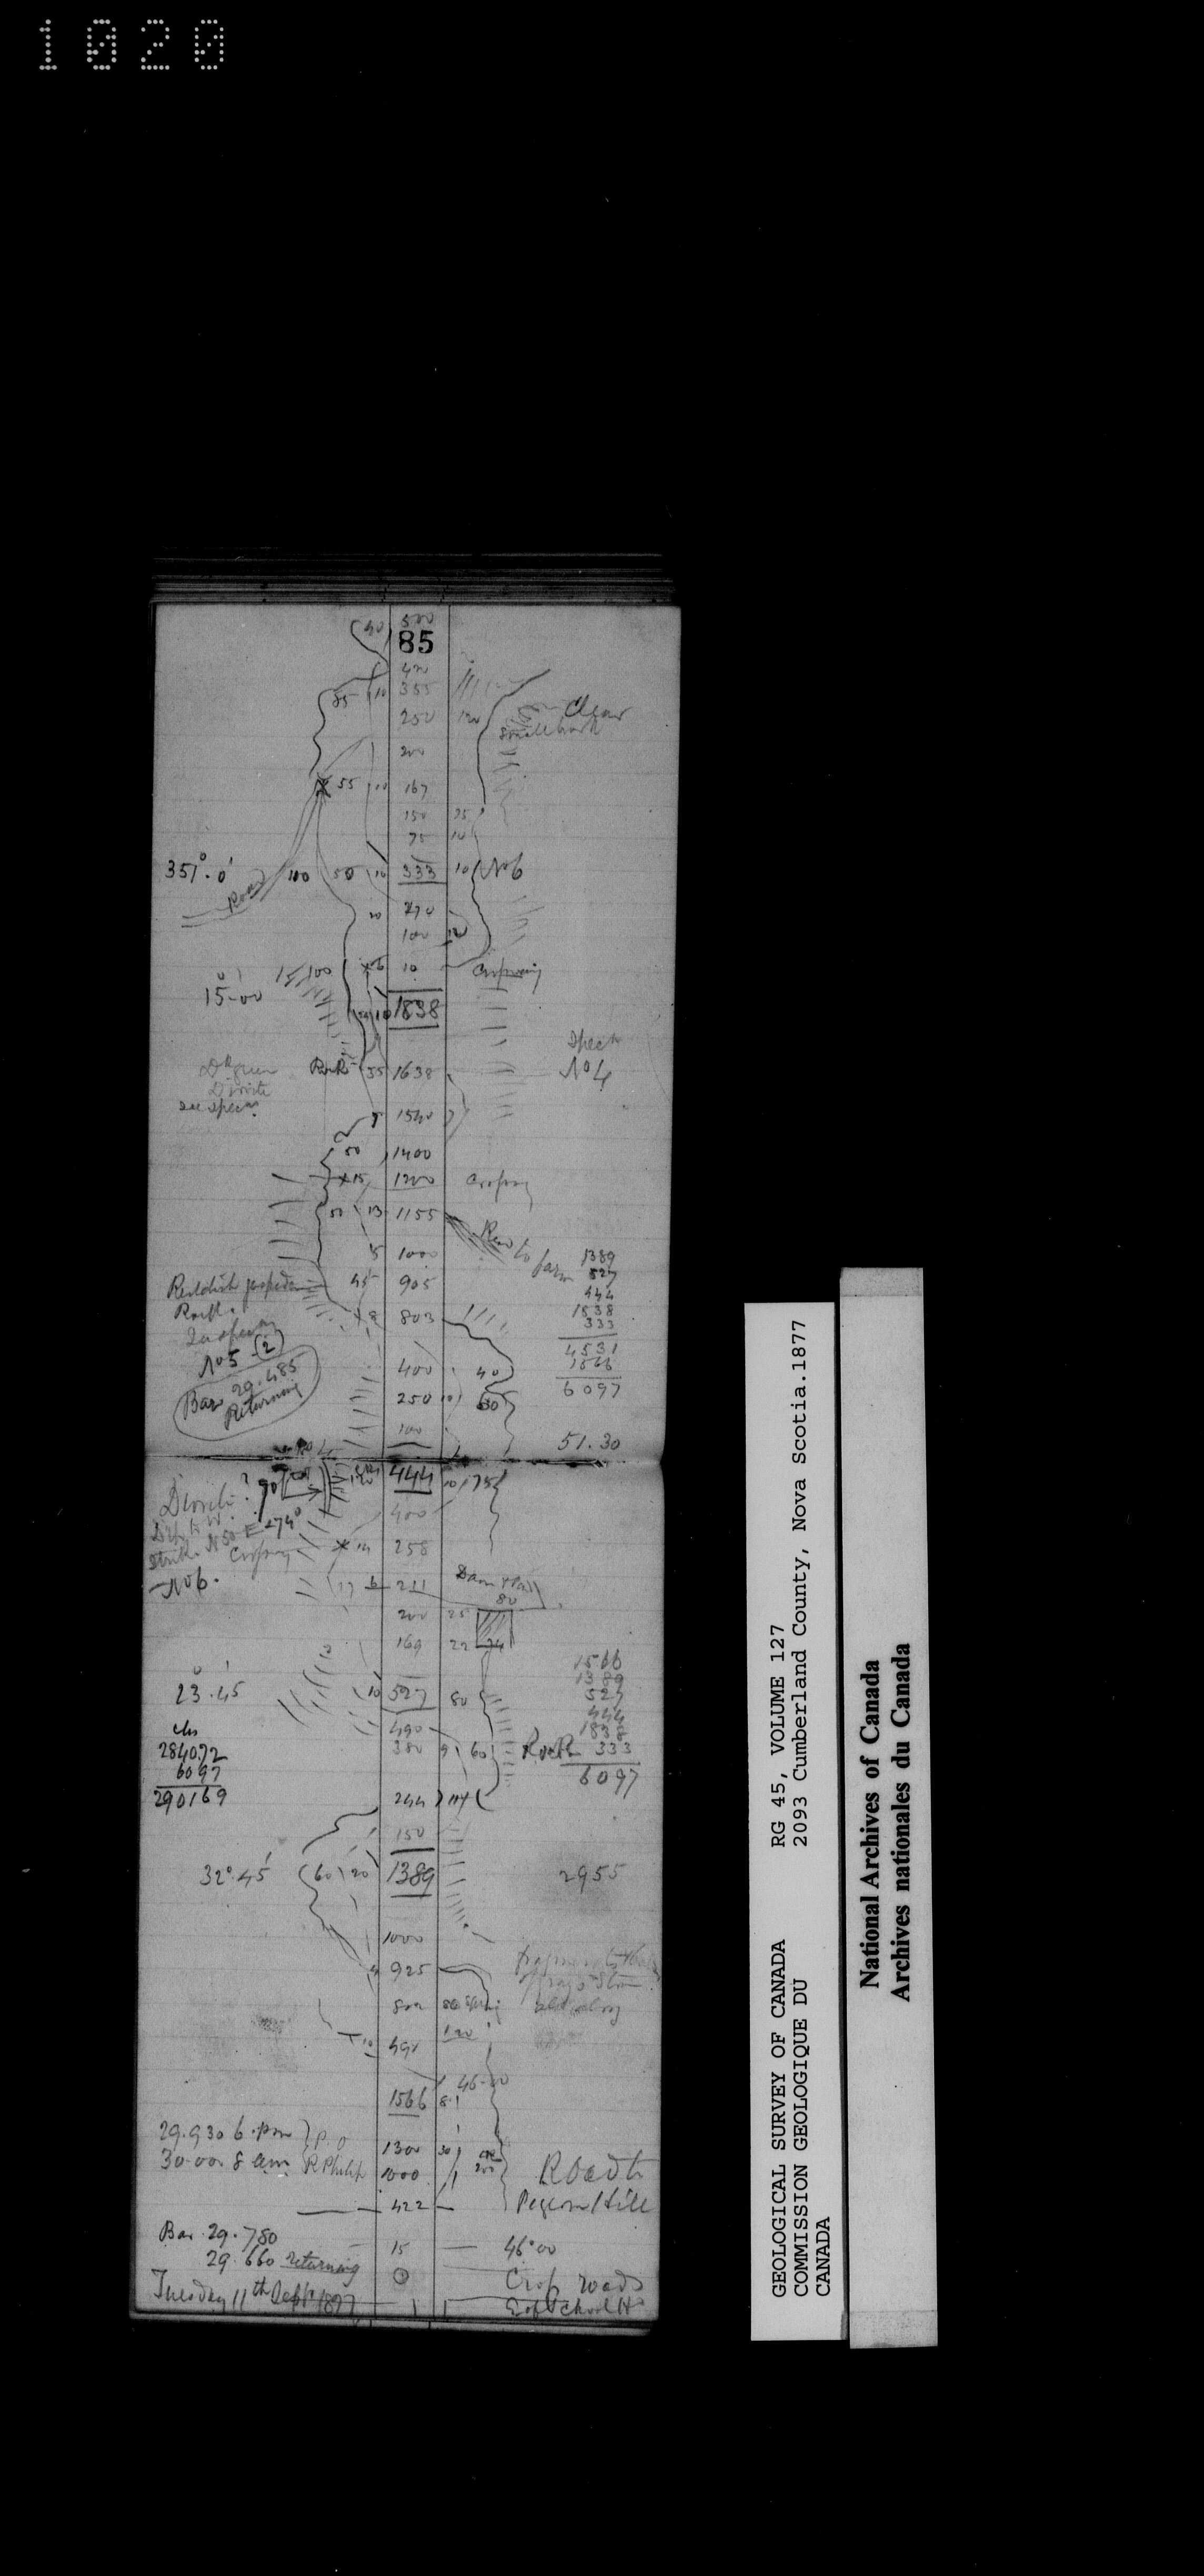 1020
40 500
85
420
85 10 355
250 120 Clear
200
55 10 167
150 25
75 10
351°.0' 100 50 10 333 10 No 6
Road
20 270
100 12
15 100 6 10 Cropping
15°-00'
10 1838
Rock 35 1638
Spec
No 4
Diorite
see specm.
1540
50 1400
15 1200
50 13 1155
Road to farm
5 1000
1389
527
444
1838
333
4531
1566
6097
Reddish
Rock
45 905
8 803
No 5 (2)
Bar 29.485
Returning
400 40
250 10 30
100
51.30
444 10 75
Diorite? 90
Dip to W.
Strike N 50 E 274°
No 6.
400
14 258
17 6 211
80
200 25
169 22 24
1566
1389
527
444
1838
Rock 333
6097
23°.45'
10 527 80
490
380 9 60
284072
6097
290169
244 114
150
32°.45' 60 20 1389 2955
1000
4 925
800
10 491 120
46-00
1566 8
29.930 6 pm P.O
30.00 8 am R Philip
1300 30
1000 200
Road to
Pigeon Hill
422
Bar 29.780
29.660 returning
15 46°00
Tuesday 11th Sept 1877
Crop roads
School H
GEOLOGICAL SURVEY OF CANADA RG 45, VOLUME 127
COMMISSION GEOLOGIQUE DU 2093 Cumberland County, Nova Scotia.1877
CANADA
National Archives of Canada
Archives nationales du Canada